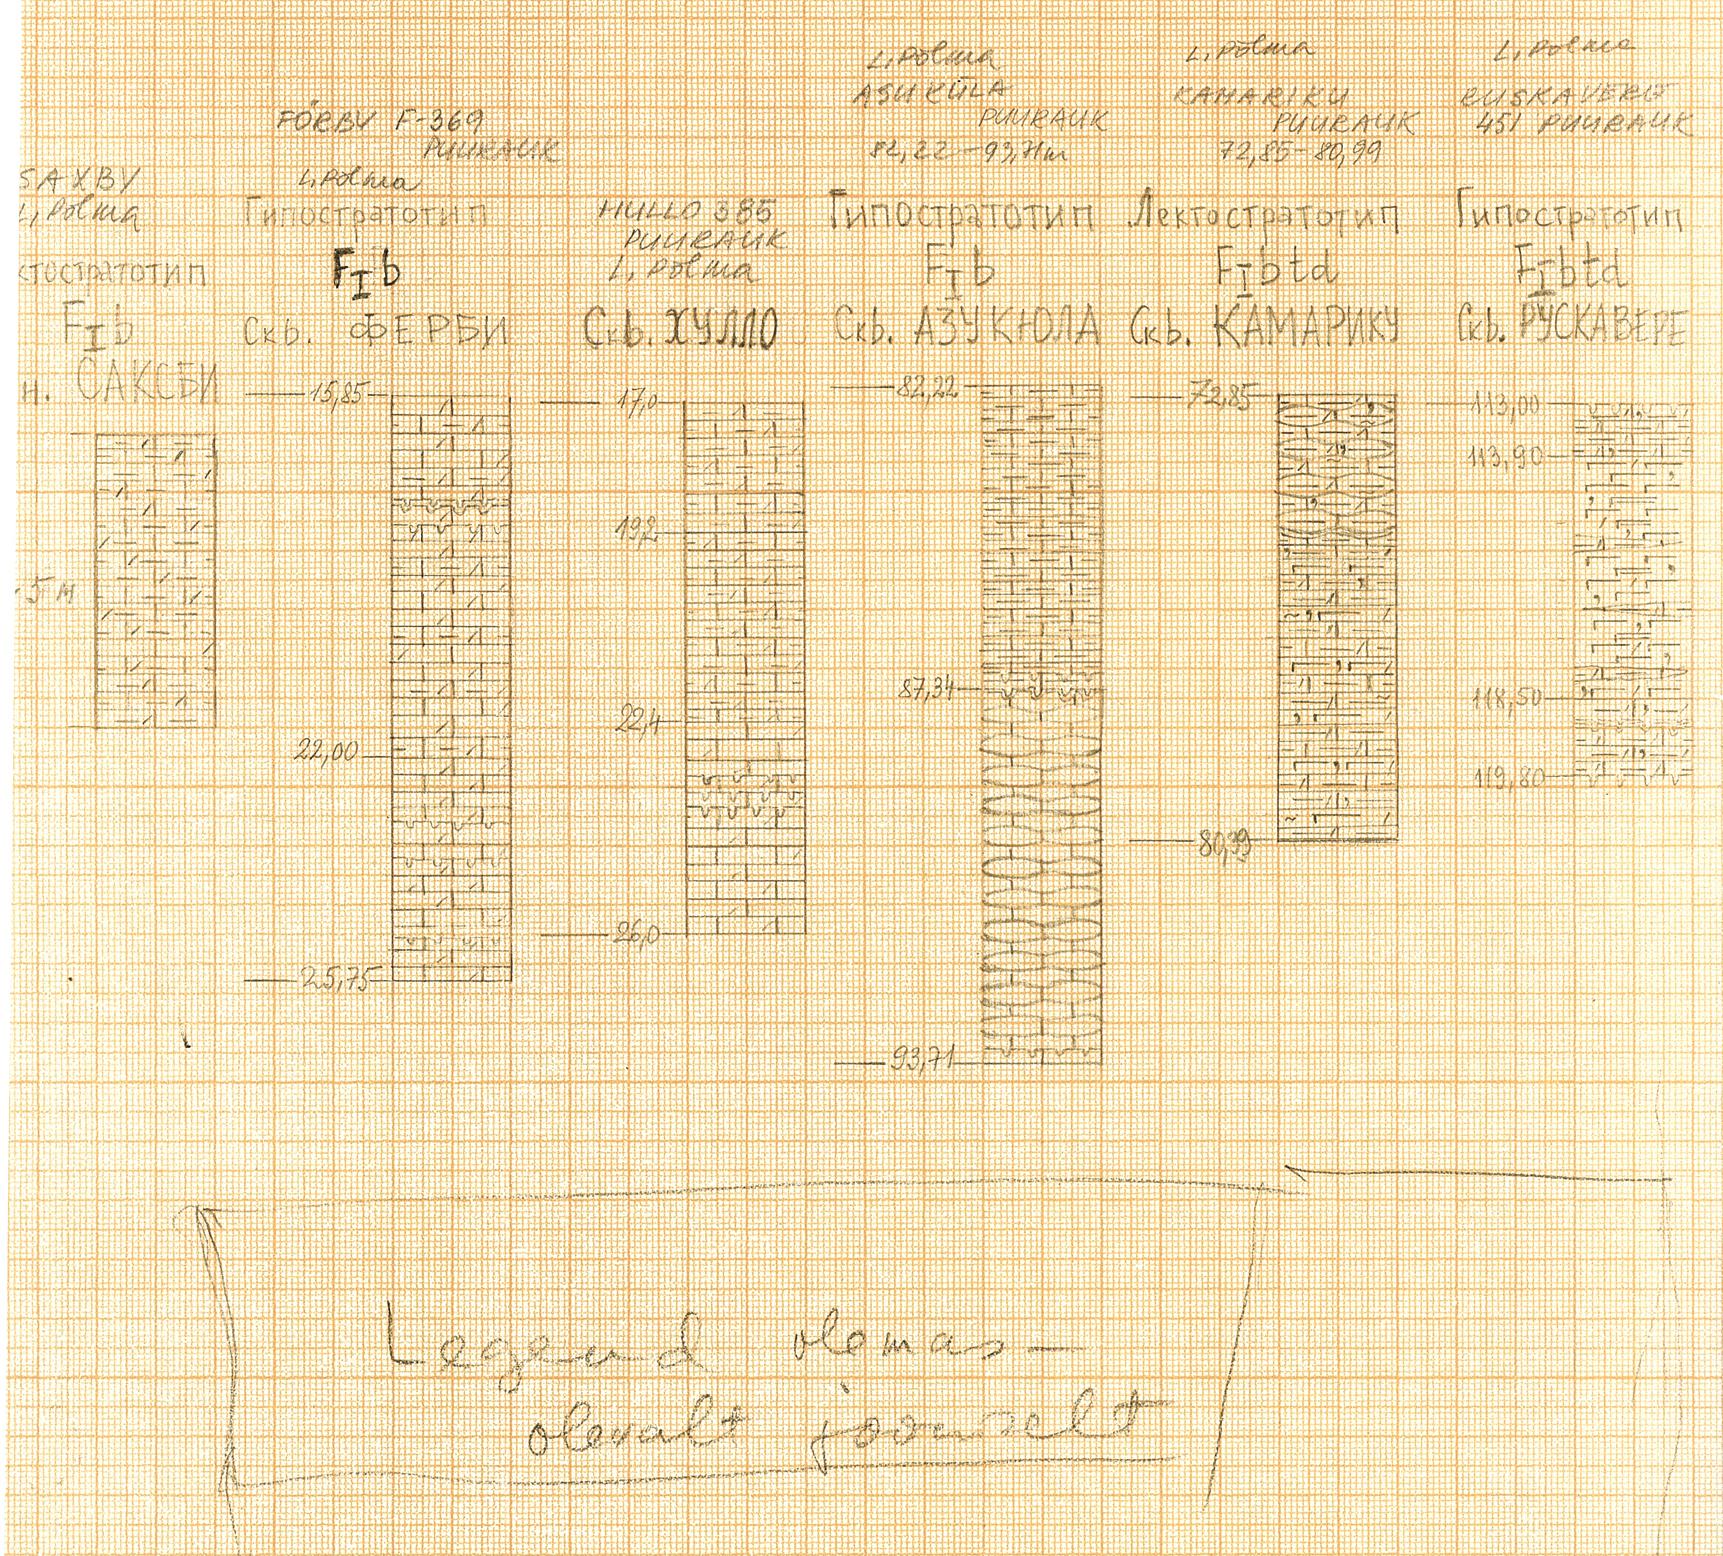 SAXBY
L. Põlma
ктостратотип
FIb
н. САКСБИ
5 м
FÖRBY F-369
PUURAUK
L. Põlma
Гипостратотип
FIb
Скв. ФЕРБИ
15,85
22,00
25,75
HULLO 385
PUURAUK
L. Põlma
Скв. ХУЛЛО
17,0
19,2
22,4
26,0
L. Põlma
ASUKÜLA
PUURAUK
82,22-93,71m
Гипостратотип
FIb
Скв. АЗУКЮЛА
82,22
87,34
93,71
L. Põlma
KAMARIKU
PUURAUK
72,85-80,99
Лектостратотип
FIbtd
Скв. КАМАРИКУ
72,85
80,99
L. Põlma
RUSKAVERE
451 PUURAUK
Гипостратотип
FIbtd
Скв. РУСКАВЕРЕ
113,00
113,90
118,50
119,80
Legend olemas-
olevalt jooniselt